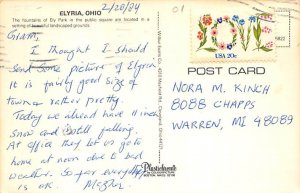 ELYRIA, OHIO
2/20/84
The fountains of Ely Park in the public square are located in a
setting of beautiful landscaped grounds.
I thought I should
send some picture of Elyria
It is fairly good size of
town & rather pretty.
Today we already have 11 inch
snow and still falling.
At office they let us go to
home at noon due to bad
weather. So far everything
is ok.
01
USA 20c
POST CARD
NORA M. KINCH
8088 CHAPPS
WARREN, MI 48089
Plastichrome